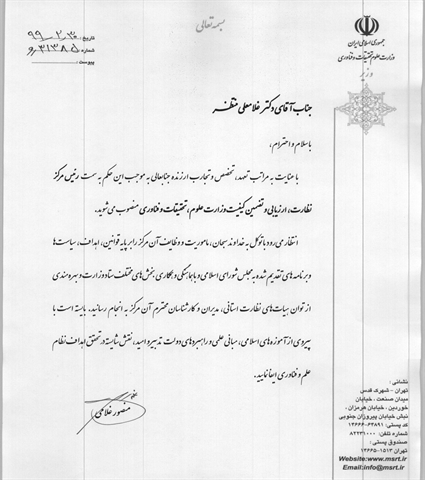 بسمه تعالی
جمهوری اسلامی ایران
وزارت علوم، تحقیقات و فناوری
وزیر
تاریخ: ۹۹-۲-۳۰
شماره: ۳۱۳۸۵/و
پیوست:
جناب آقای دکتر غلامعلی منتظر
با سلام و احترام،
با عنایت به مراتب تعهد، تخصص و تجارب ارزنده جنابعالی به موجب این حکم به سمت رئیس مرکز
نظارت، ارزیابی و تضمین کیفیت وزارت علوم، تحقیقات و فناوری منصوب می‌شوید.
انتظار می‌رود با توکل به خداوند سبحان، ماموریت و وظایف آن مرکز را بر پایه قوانین، اهداف، سیاست‌ها
و برنامه‌های تقدیم شده به مجلس شورای اسلامی و با هماهنگی و همکاری بخش‌های مختلف ستاد وزارت و بهره‌مندی
از توان هیات‌های نظارت استانی، مدیران و کارشناسان محترم آن مرکز به انجام رسانید. بایسته است با
پیروی از آموزه‌های اسلامی، مبانی علمی و راهبردهای دولت تدبیر و امید، نقش شایسته در تحقق اهداف نظام
علم و فناوری ایفا نمایید.
منصور غلامی
نشانی:
تهران - شهرک قدس
میدان صنعت، خیابان
خوردین، خیابان هرمزان،
نبش خیابان پیروزان جنوبی
کد پستی: ۶۴۸۹۱-۱۴۶۶۶
شماره تلفن: ۸۲۲۳۱۰۰۰
صندوق پستی:
تهران ۱۵۱۳-۱۴۶۶۵
Website:www.msrt.ir
Email:info@msrt.ir